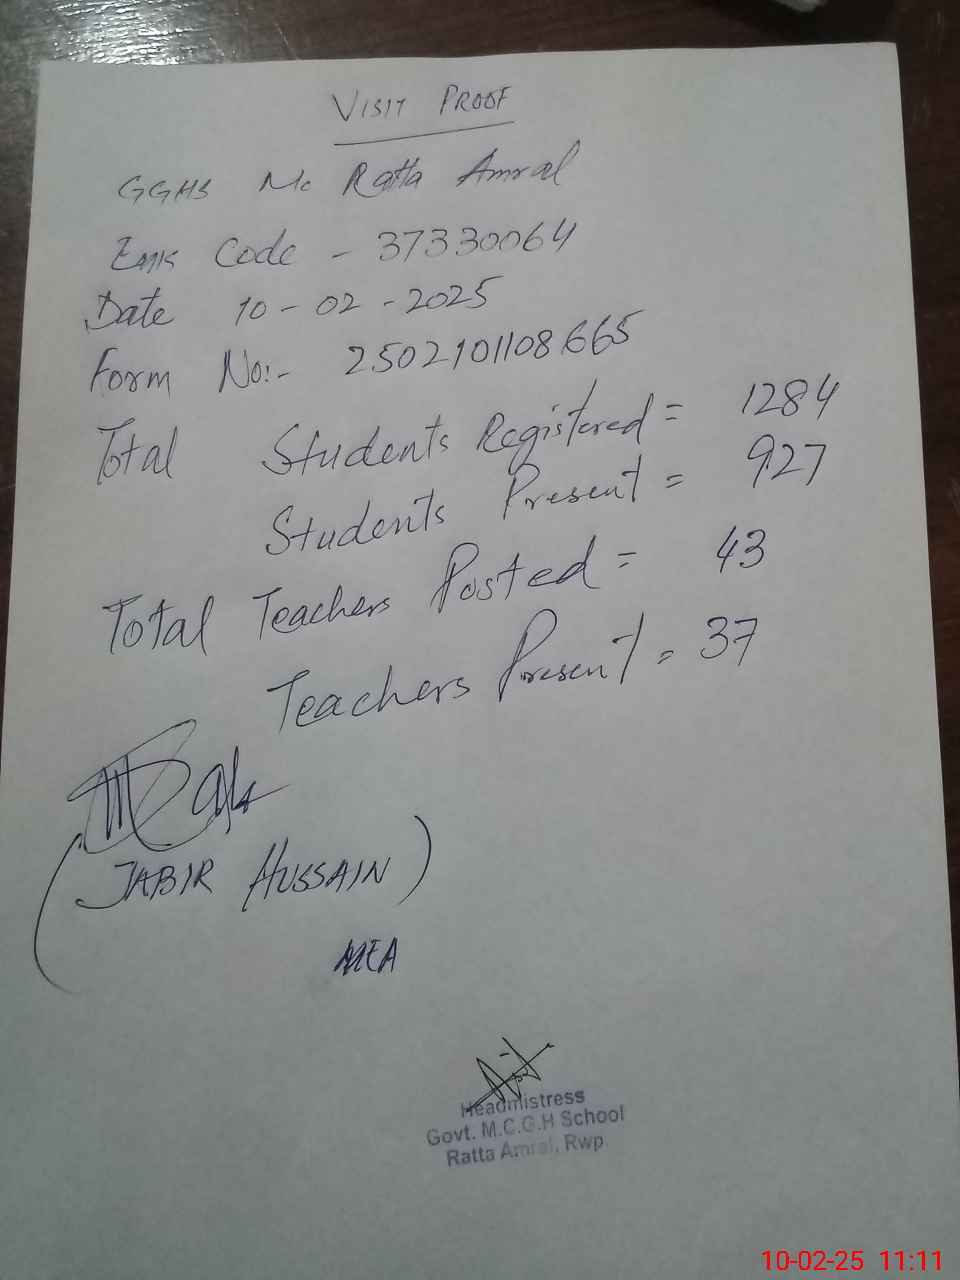 VISIT PROOF
GGHS Mc Ratta Amral
Emis Code - 37330064
Date 10-02-2025
Form No:- 2502101108665
Total Students Registered = 1284
Students Present = 927
Total Teachers Posted = 43
Teachers Present = 37
(JABIR HUSSAIN)
MEA
Headmistress
Govt. M.C.G.H School
Ratta Amral, Rwp
10-02-25 11:11